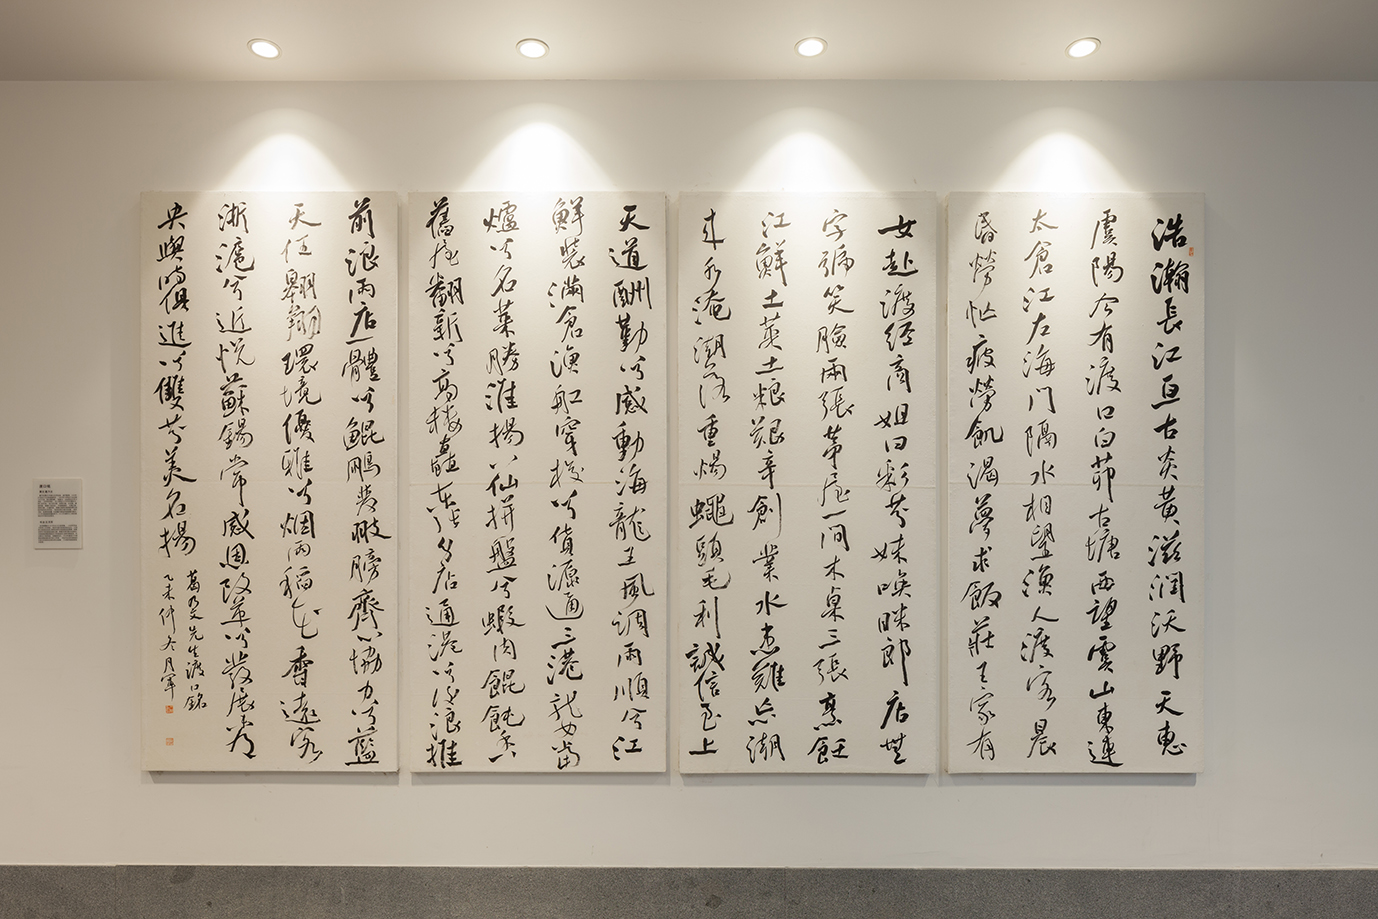 浩瀚長江亘古炎黃滋潤沃野天惠
虞陽今有渡口白茆古塘西望虞山東連
太倉江左海門隔水相望漁人渡客晨
昏勞忙疲勞飢渴夢求飯莊王家有
女赴渡經商姐曰彩芬妹喚眯郎店無
字號笑臉兩張茅屋一間木桌三張烹飪
江鮮土菜土粮艱辛創業水患難亦潮
來水淹潮落重煬蠅頭毛利誠信至上
天道酬勤兮感動海龍王風調雨順兮江
鮮裝滿倉漁舡穿梭兮貨源通三港龍女當
爐兮名菜勝淮揚八仙拼盤兮蝦肉餛飩香
舊屋翻新兮高樓矗分店通港兮後浪推
前浪兩店一體兮鯤鵬勢翅膀齊協力兮藍
天任翱翔環境優雅兮烟雨稻花香遠客
浙滬兮近悅蘇錫常感恩改革兮發展為
央與時俱進兮雙芬美名揚
葛乃文先生渡口銘
乙未仲冬月軍